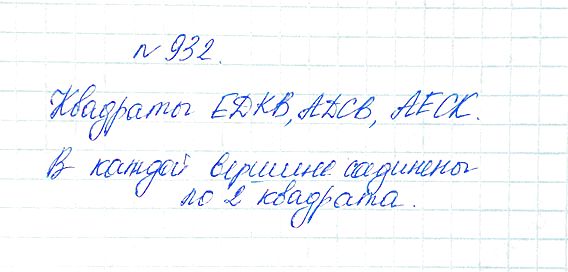 № 932.
Квадраты EDKB, ADCB, AECK.
В каждой вершине соединены
по 2 квадрата.